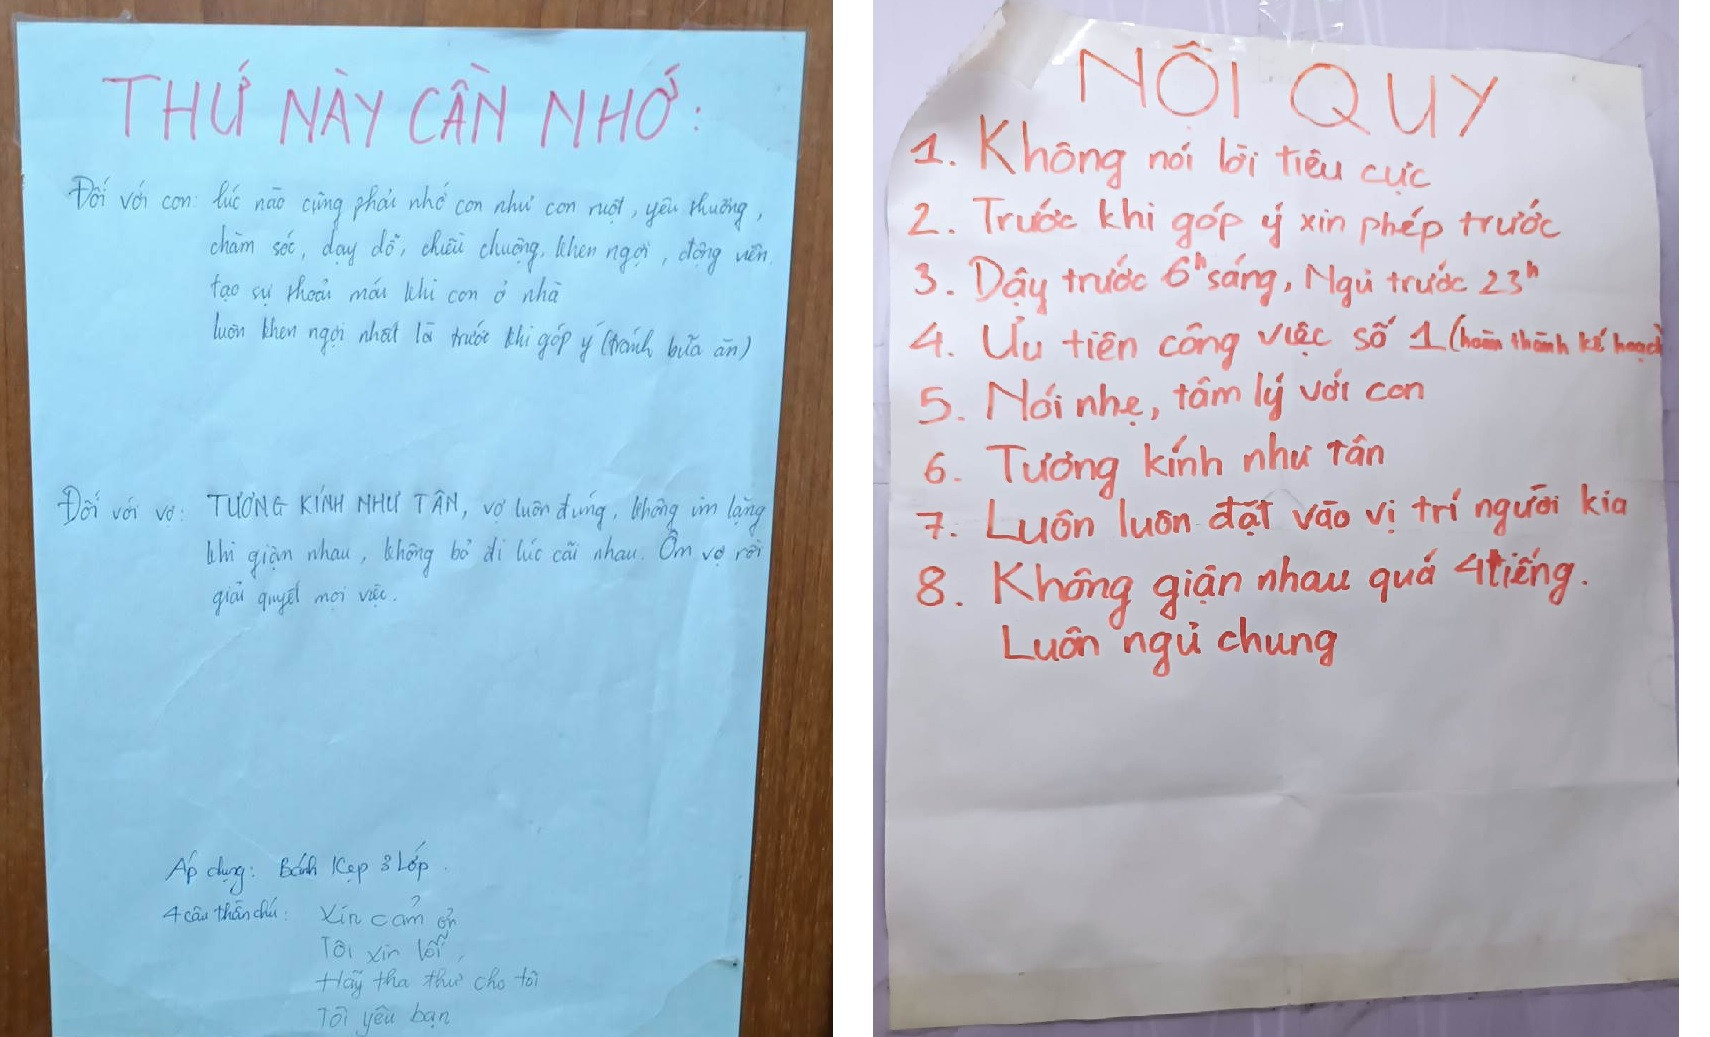 THỨ NÀY CẦN NHỚ:
Đối với con: lúc nào cũng phải nhớ con như con ruột, yêu thương,
chăm sóc, dạy dỗ, chiều chuộng, khen ngợi, động viên.
tạo sự thoải mái khi con ở nhà
luôn khen ngợi nhất là trước khi góp ý (tránh bữa ăn)
Đối với vợ: TƯƠNG KÍNH NHƯ TÂN, vợ luôn đúng, không im lặng
khi giận nhau, không bỏ đi lúc cãi nhau. Ôm vợ rồi
giải quyết mọi việc.
Áp dụng: Bánh Kẹp 3 Lớp.
4 câu thần chú: Xin cảm ơn
Tôi xin lỗi,
Hãy tha thứ cho tôi
Tôi yêu bạn
NỘI QUY
1. Không nói lời tiêu cực
2. Trước khi góp ý xin phép trước
3. Dậy trước 6h sáng, Ngủ trước 23h
4. Ưu tiên công việc số 1 (hoàn thành kế hoạch
5. Nói nhẹ, tâm lý với con
6. Tương kính như tân
7. Luôn luôn đặt vào vị trí người kia
8. Không giận nhau quá 4 tiếng.
Luôn ngủ chung